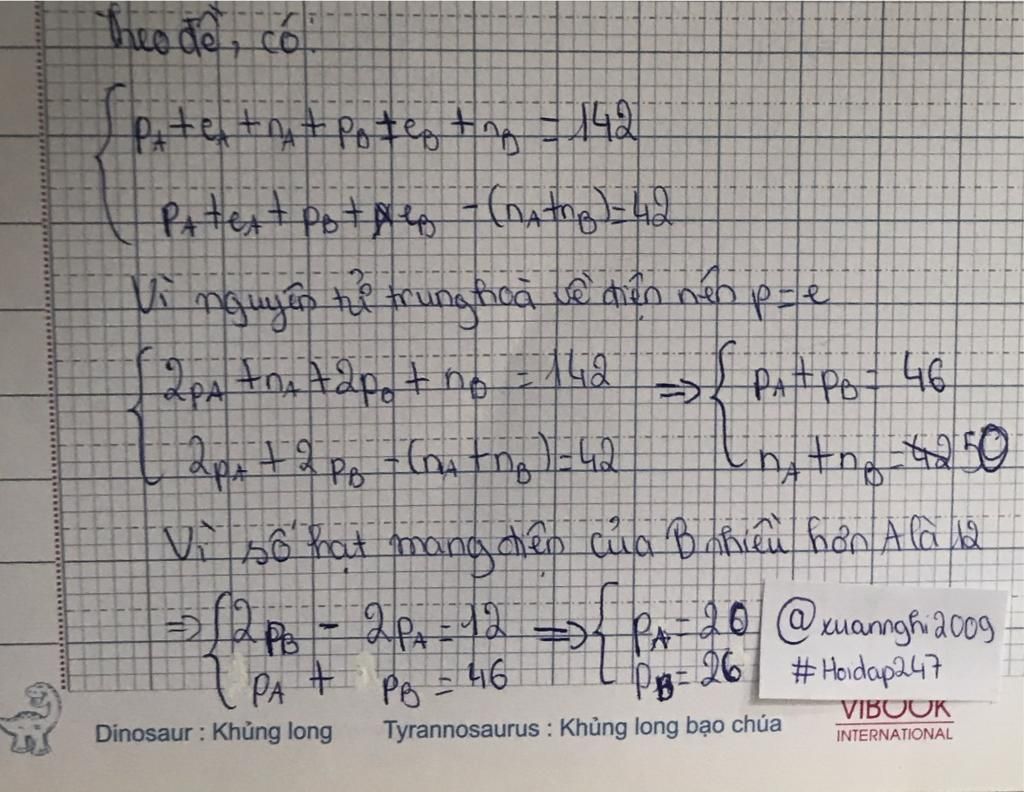 Theo đề, có:
{ pA + eA + nA + pB + eB + nB = 142
pA + eA + pB + eB - (nA + nB) = 42
Vì nguyên tử trung hoà về điện nên p = e
{ 2pA + nA + 2pB + nB = 142 => { pA + pB = 46
2pA + 2pB - (nA + nB) = 42 nA + nB = 42 50
Vì số hạt mang điện của B nhiều hơn A là 12
=> { 2pB - 2pA = 12 => { pA = 20
pA + pB = 46 pB = 26
@xuannghi2009
#Hoidap247
Dinosaur : Khủng long Tyrannosaurus : Khủng long bạo chúa
VIBOOK
INTERNATIONAL